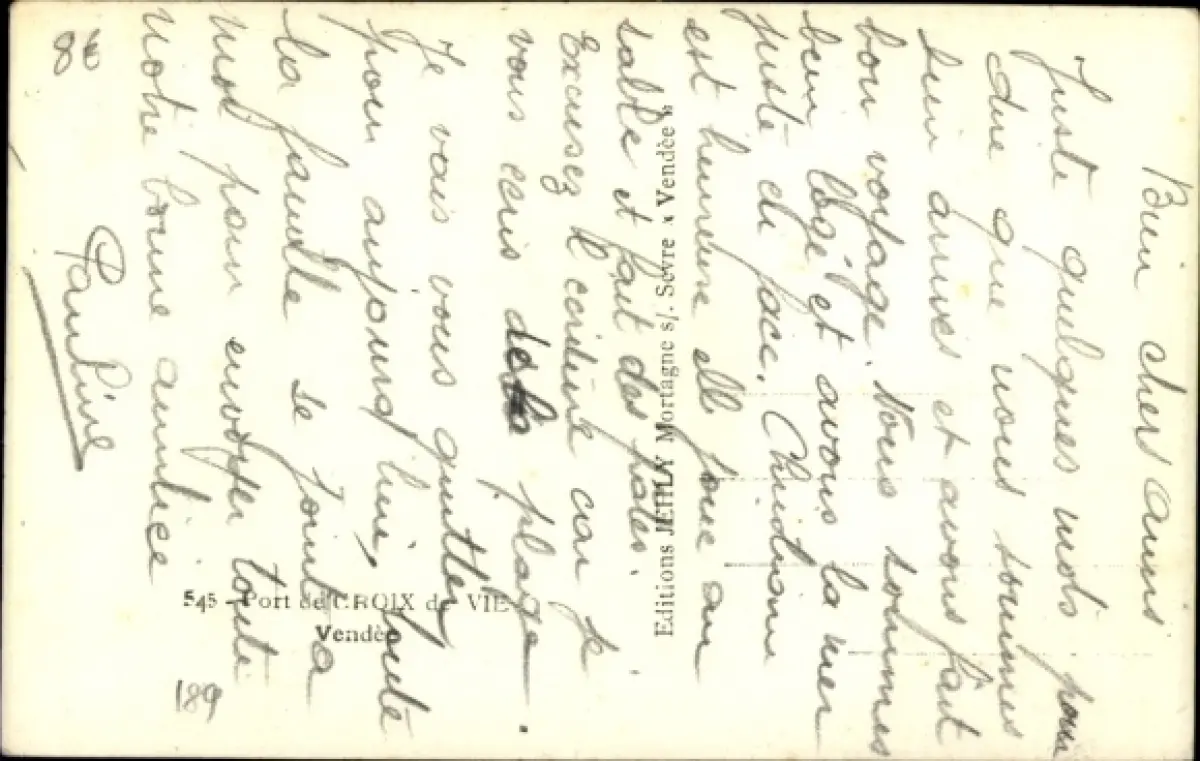 Bien chers amis
Juste quelques mots pour
dire que nous sommes
bien arrivés et avons fait
bon voyage. Nous sommes
bien logé et avons la mer
juste en face. Christiane
est heureuse elle joue au
sable et fait des patés.
Excusez l'écriture car je
vous ecris de la plage.
Je vais vous quitter
pour aujourd'hui, toute
la famille se joint a
moi pour envoyer toute
notre bonne amitiée
Pauline
Editions JEHLY Mortagne s/. Sèvre « Vendée »
545 - Port de CROIX de VIE
Vendée
189